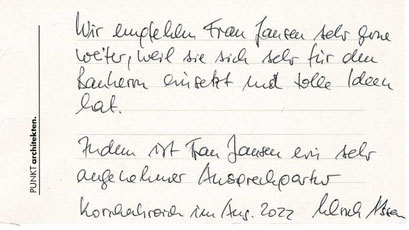 Wir empfehlen Frau Jansen sehr gerne
weiter, weil sie sich sehr für den
Bauherrn einsetzt und tolle Ideen
hat.
Zudem ist Frau Jansen ein sehr
angenehmer Ansprechpartner
im Aug. 2022
PUNKTarchitekten.